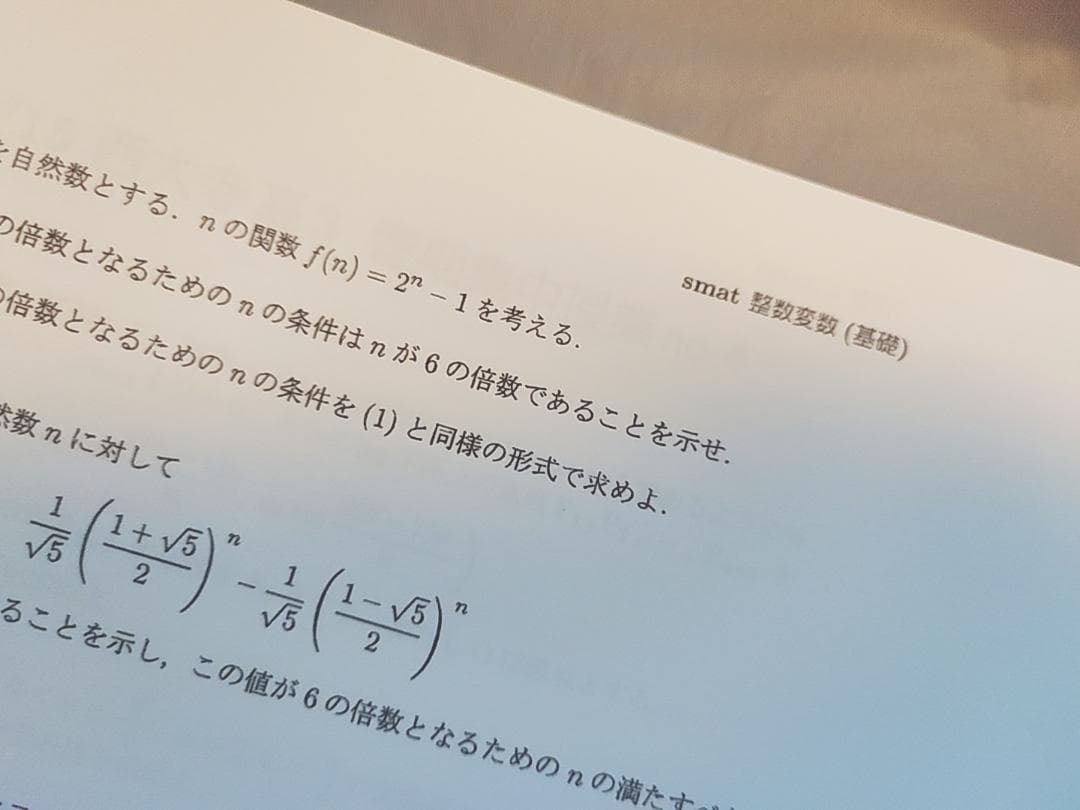 smat 整数変数 (基礎)
を自然数とする. n の関数 f(n) = 2ⁿ − 1 を考える.
の倍数となるための n の条件は n が 6 の倍数であることを示せ.
の倍数となるための n の条件を (1) と同様の形式で求めよ.
然数 n に対して
1/√5 ((1 + √5)/2)ⁿ − 1/√5 ((1 − √5)/2)ⁿ
ることを示し, この値が 6 の倍数となるための n の満たすべ